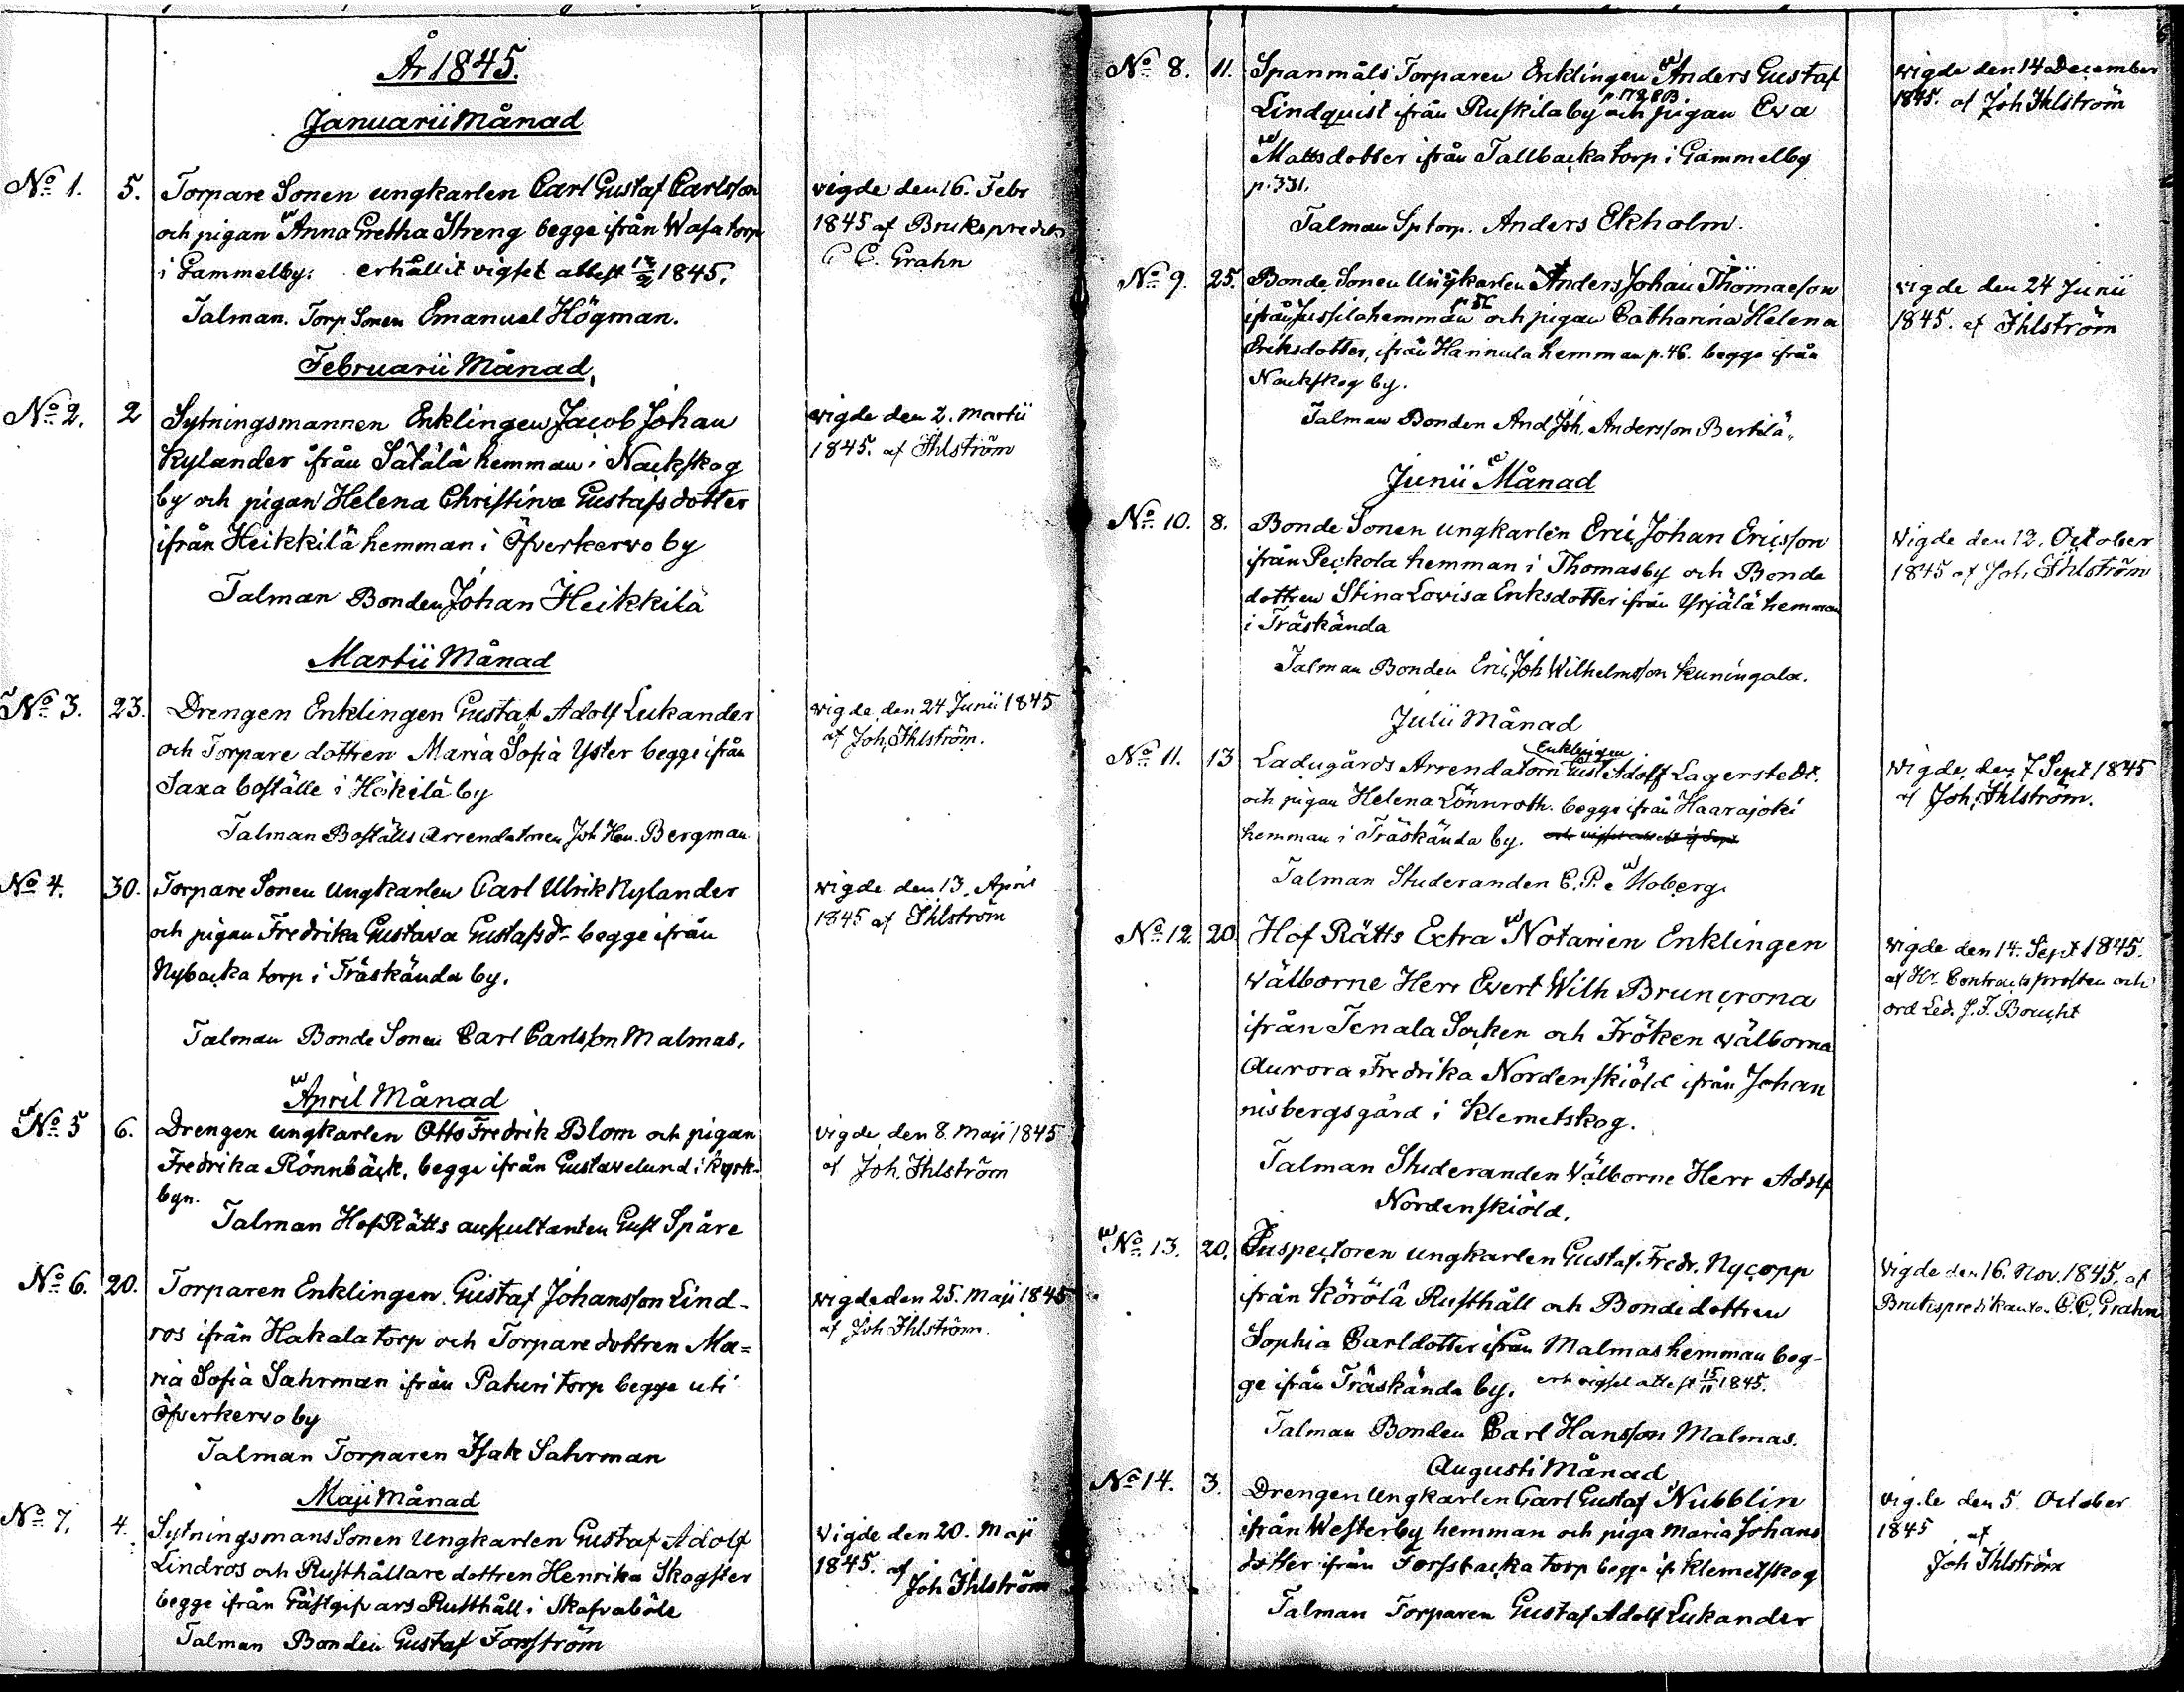 År 1845.
Januarii Månad
No 1. 5. Torpare Sonen ungkarlen Carl Gustaf Carlsson
och pigan Anna Gretha Streng begge ifrån Wasa torp
i Gammelby. erhållit vigset attest 13/2 1845.
Talman. Torp Sonen Emanuel Högman.
vigde den 16. Febr
1845 af Brukspredik
C. E. Grahn
Februarii Månad
No 2. 2 Sytningsmannen Enklingen Jacob Johan
Rylander ifrån Sätälä hemman i Nackskog
by och pigan Helena Christina Gustafsdotter
ifrån Heikkilä hemman i Öfverkervo by
Talman Bonden Johan Heikkilä
vigde den 2. Martii
1845. af Ihlström
Martii Månad
No 3. 23. Drengen Enklingen Gustaf Adolf Lukander
och Torpare dottren Maria Sofia Yster begge ifrån
Saxa boställe i Hökilä by
Talman Boställs Arrendatoren Joh Hen. Bergman
vigde den 24 Junii 1845
af Joh. Ihlström.
No 4. 30. Torpare Sonen Ungkarlen Carl Ulrik Nylander
och pigan Fredrika Gustava Gustafsdr begge ifrån
Nybacka torp i Träskända by.
Talman Bonde Sonen Carl Carlsson Malmas.
vigde den 13. April
1845 af Ihlström
April Månad
No 5 6. Drengen ungkarlen Otto Fredrik Blom och pigan
Fredrika Rönnbäck, begge ifrån Gustavelund i kyrk-
byn.
Talman HofRätts auskultanten Gust Spåre
vigde den 8. Maji 1845
af Joh. Ihlström
No 6. 20. Torparen Enklingen Gustaf Johansson Lind-
ros ifrån Hakala torp och Torpare dottren Ma=
ria Sofia Sahrman ifrån Paturi torp begge uti
Öfverkervo by
Talman Torparen Isak Sahrman
vigde den 25. Maji 1845
af Joh Ihlström.
Maji Månad
No 7. 4. Sytningsmans Sonen Ungkarlen Gustaf Adolf
Lindros och Rusthållare dottren Henrika Skogster
begge ifrån Gästgifvars Rusthåll i Skafvaböle
Talman Bonden Gustaf Forsström
Vigde den 20. Maji
1845. af
Joh Ihlström
No 8. 11. Spanmåls Torparen Enklingen Anders Gustaf
p. 178 PB.
Lindquist ifrån Ruskilaby och pigan Eva
Mattsdotter ifrån Tallbacka torp i Gammelby
p. 331.
Talman Sp torp. Anders Ekholm.
vigde den 14 December
1845. af Joh Ihlström
No 9. 25. Bonde Sonen Ungkarlen Anders Johan Thomasson
ifrån Jussila hemman p 56 och pigan Catharina Helena
Eriksdotter, ifrån Hannula hemman p. 46. begge ifrån
Nackskog by.
Talman Bonden And Joh. Andersson Bertilä.
vigde den 24 Junii
1845. af Ihlström
Junii Månad
No 10. 8. Bonde Sonen ungkarlen Eric Johan Ericsson
ifrån Peckola hemman i Thomasby och Bonde
dottren Stina Lovisa Eriksdotter ifrån Yrjälä hemman
i Träskända
Talman Bonden Eric Joh Wilhelmsson Kuningala.
Vigde den 12. October
1845 af Joh Ihlström
Julii Månad
Enklingen
No 11. 13 Ladugårds Arrendatorn Gust Adolf Lagerstedt.
och pigan Helena Lönnroth. begge ifrån Haarajoki
hemman i Träskända by.
Talman Studeranden C. P. Moberg
Vigde den 7 Sept 1845
af Joh. Ihlström.
No 12. 20. Hof Rätts Extra Notarien Enklingen
wälborne Herr Evert Wilh Bruncrona
ifrån Tenala Socken och Fröken wälborna
Aurora Fredrika Nordenskiöld ifrån Johan
nisbergsgård i Klemetskog.
Talman Studeranden Välborne Herr Adolf
Nordenskiöld.
Vigde den 14. Sept 1845.
af Hr Contractsprosten och
ord Led. J. F. Boucht
No 13. 20. Inspectoren ungkarlen Gustaf Fredr. Nycopp
ifrån Körölä Rusthåll och Bondedottren
Sophia Carldotter ifrån Malmas hemman beg-
ge ifrån Träskända by. erh vigsel attest 15/11 1845.
Talman Bonden Carl Hansson Malmas.
Vigde den 16. Nov. 1845. af
Brukspredikanten C. E. Grahn
Augusti Månad
No 14. 3. Drengen Ungkarlen Carl Gustaf Nubblin
ifrån Westerby hemman och piga Maria Johans
dotter ifrån Forssbacka torp begge if. Klemetskog
Talman Torparen Gustaf Adolf Lukander
Vigde den 5 October
1845 af
Joh Ihlström